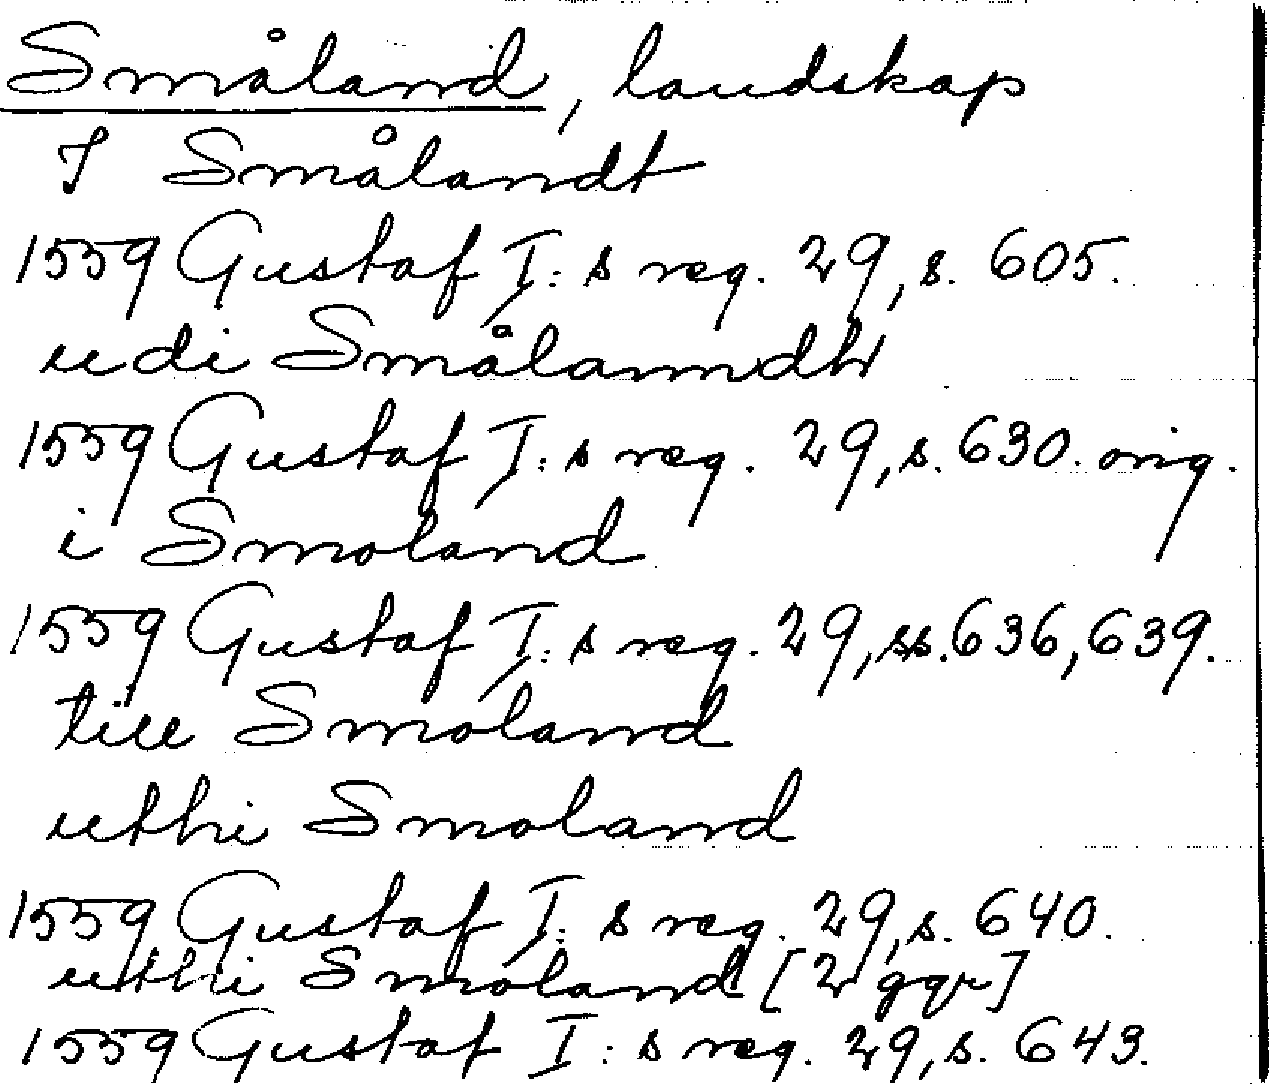 Småland, landskap
I Smålandt
1559 Gustaf I:s reg. 29, s. 605.
udi Smålanndh
1559 Gustaf I:s reg. 29, s. 630. orig.
i Smoland
1559 Gustaf I:s reg. 29, ss. 636, 639.
till Smoland
uthi Smoland
1559 Gustaf I:s reg. 29, s. 640.
uthi Smoland [2 ggr]
1559 Gustaf I:s reg. 29, s. 643.